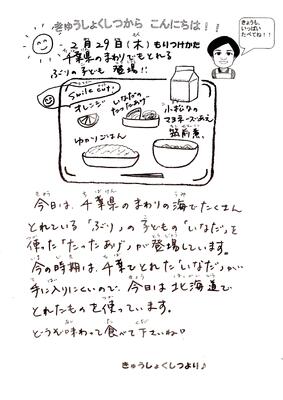 きゅうしょくしつから こんにちは！！
きょうも、
いっぱい
たべてね！！
2月29日(木) もりつけかた
千葉県のまわりでもとれる
ぶりの子ども 登場！！
Smile cut!
オレンジ
いなだの
たつたあげ
小松なの
マヨネーズあえ
筑前煮
ゆかりごはん
今日は、千葉県のまわりの海でたくさん
とれている「ぶり」の子どもの「いなだ」を
使った「たつたあげ」が登場しています。
今の時期は、千葉でとれた「いなだ」が
手に入りにくいので、今日は北海道で
とれたものを使っています。
どうぞ味わって食べて下さいね。
きゅうしょくしつより♪